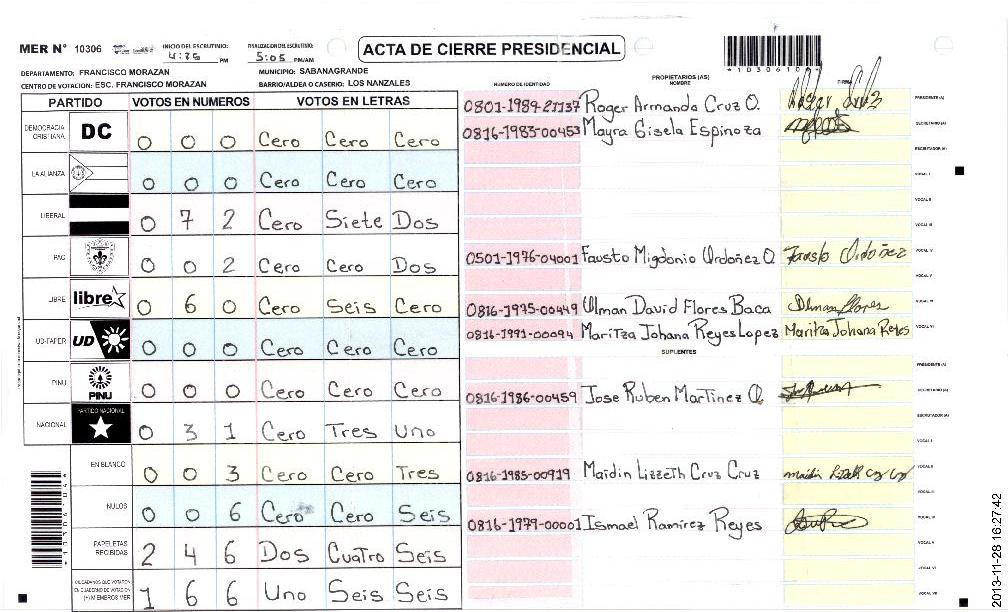 MER N° 10306
INICIO DEL ESCRUTINIO: PM
FINALIZACION DEL ESCRUTINIO: 5:05 PM/AM
ACTA DE CIERRE PRESIDENCIAL
DEPARTAMENTO: FRANCISCO MORAZAN MUNICIPIO: SABANAGRANDE
CENTRO DE VOTACION: ESC. FRANCISCO MORAZAN BARRIO/ALDEA O CASERIO: LOS NANZALES
PARTIDO VOTOS EN NUMEROS VOTOS EN LETRAS
DEMOCRACIA CRISTIANA DC 0 0 0 Cero Cero Cero
LA ALIANZA 0 0 0 Cero Cero Cero
LIBERAL 0 7 2 Cero Siete Dos
PAC 0 0 2 Cero Cero Dos
LIBRE libre 0 6 0 Cero Seis Cero
UD-FAPER UD 0 0 0 Cero Cero Cero
PINU PINU 0 0 0 Cero Cero Cero
NACIONAL PARTIDO NACIONAL 0 3 1 Cero Tres Uno
EN BLANCO 0 0 3 Cero Cero Tres
NULOS 0 0 6 Cero Cero Seis
PAPELETAS RECIBIDAS 2 4 6 Dos Cuatro Seis
CIUDADANOS QUE VOTARON EN CUADERNO DE VOTACION (+) MIEMBROS MER 1 6 6 Uno Seis Seis
NUMERO DE IDENTIDAD PROPIETARIOS (AS) NOMBRE
Roger Armando Cruz O. PRESIDENTE (A)
0816-1983-00453 Mayra Gisela Espinoza SECRETARIO (A)
ESCRUTADOR (A)
VOCAL I
VOCAL II
VOCAL III
0501-1976-04001 Fausto Migdonio Ordoñez O. Fausto Ordoñez VOCAL IV
VOCAL V
0816-1975-00449 Ulman David Flores Baca Ulman Flores VOCAL VI
0816-1991-00094 Maritza Johana Reyes Lopez Maritza Johana Reyes
SUPLENTES
PRESIDENTE (A)
0816-1986-00459 Jose Ruben Martinez O. SECRETARIO (A)
ESCRUTADOR (A)
VOCAL I
0816-1985-00919 Maidin Lizzeth Cruz Cruz VOCAL II
VOCAL III
0816-1979-00001 Ismael Ramirez Reyes VOCAL IV
VOCAL V
VOCAL VI
VOCAL VII
2013-11-28 16:27:42